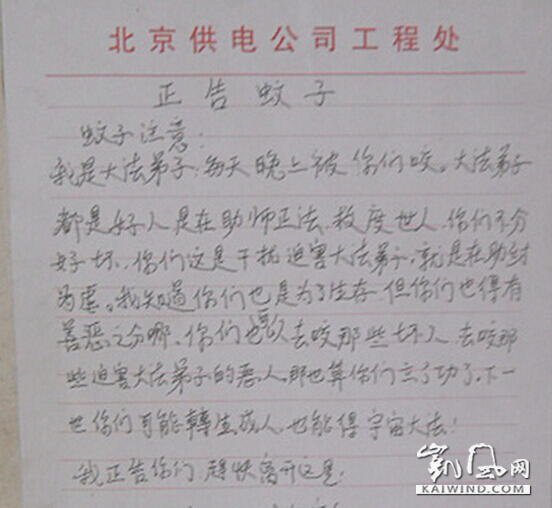 北京供电公司工程处
正告蚊子
蚊子注意:
我是大法弟子,每天晚上被你们咬。大法弟子
都是好人是在助师正法、救度世人,你们不分
好坏、你们这是干扰迫害大法弟子,就是在助纣
为虐。我知道你们也是为了生存,但你们也得有
善恶之分哪、你们也可以去咬那些坏人,去咬那
些迫害大法弟子的恶人,那也算你们立了功了,下一
世你们可能轉生成人,也能得宇宙大法!
我正告你们,趕快离开这
凯风网
KAIWIND.COM